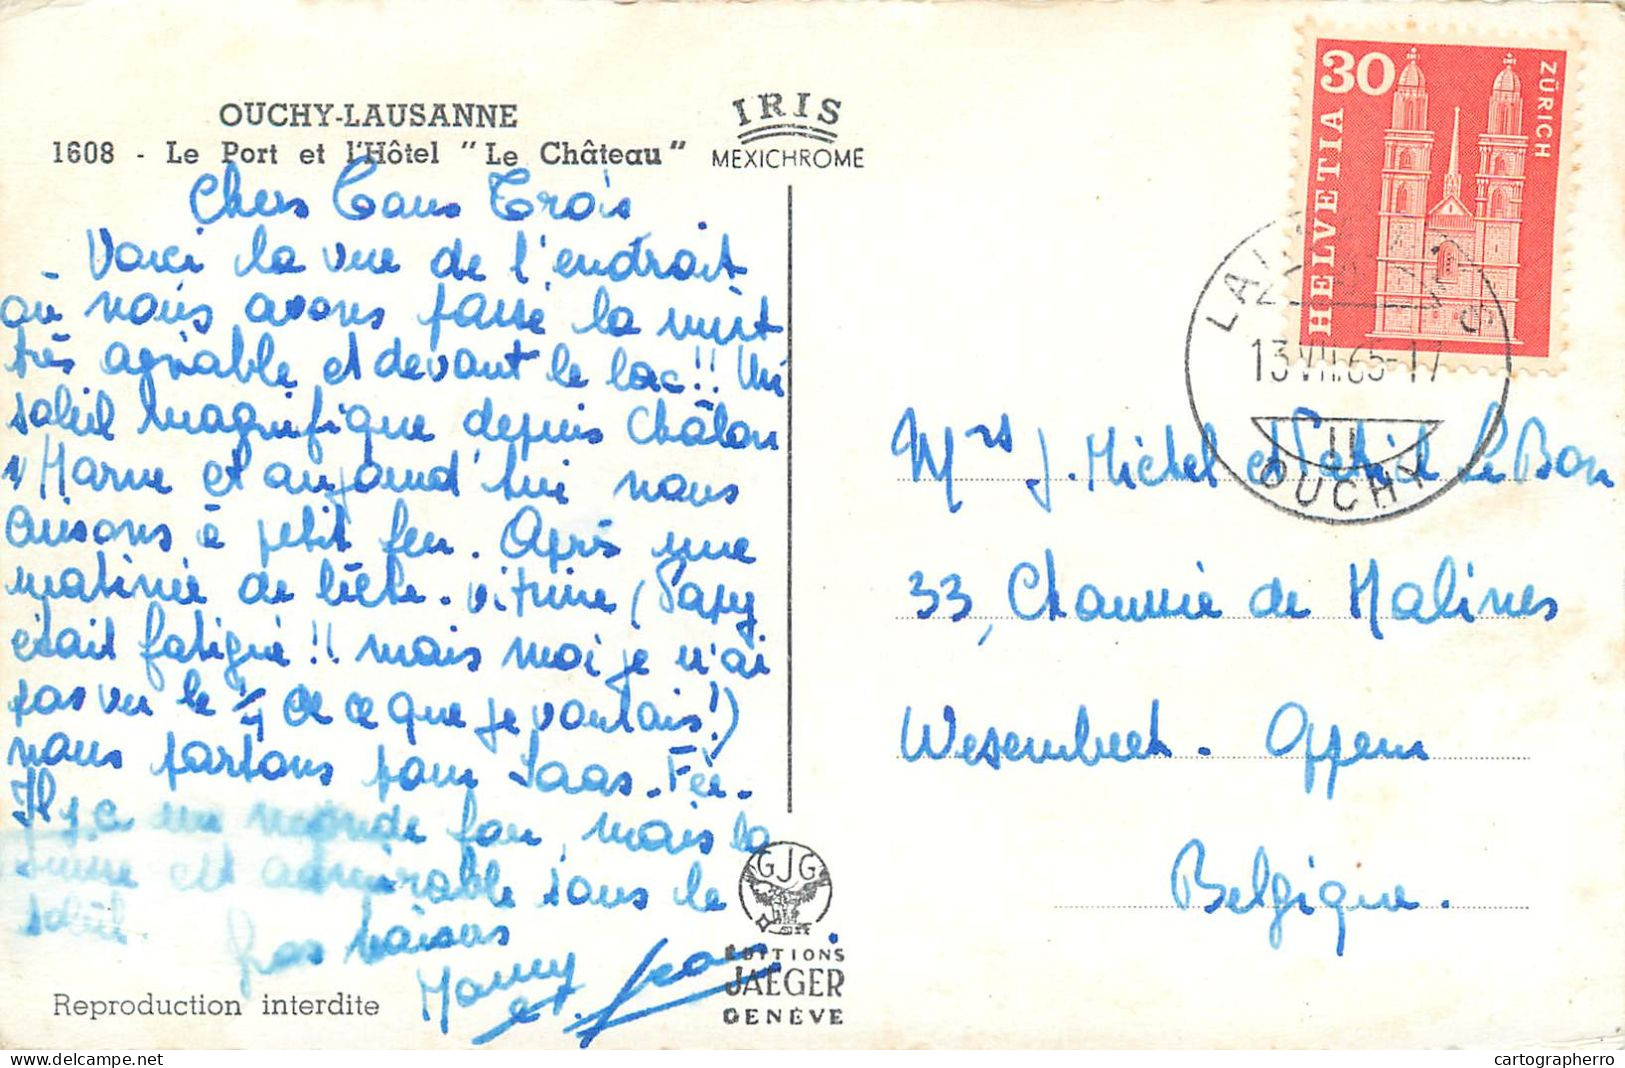 OUCHY-LAUSANNE
1608 - Le Port et l'Hôtel "Le Château"
IRIS
MEXICHROME
Chers Tous Trois
Voici la vue de l'endroit
où nous avons passé la nuit
très agréable et devant le lac!! Un
soleil magnifique depuis Châlon
s/Marne et aujourd'hui nous
cuisons à petit feu. Après une
matinée de lèche-vitrine (Papy
était fatigué!! mais moi je n'ai
pas vu le 1/4 de ce que je voulais!)
nous partons pour Saas-Fée.
Il y a un monde fou, mais la
Suisse est admirable sous le
soleil. Gros baisers
Mamy
et Jean
Reproduction interdite
GJG
EDITIONS
JAEGER
GENÈVE
30
HELVETIA
ZÜRICH
13.VII.65-17
OUCHY
Mrs J. Michel et Le Bon
33, Chaussée de Malines
Wesembeek-Oppem
Belgique.
cartographerro